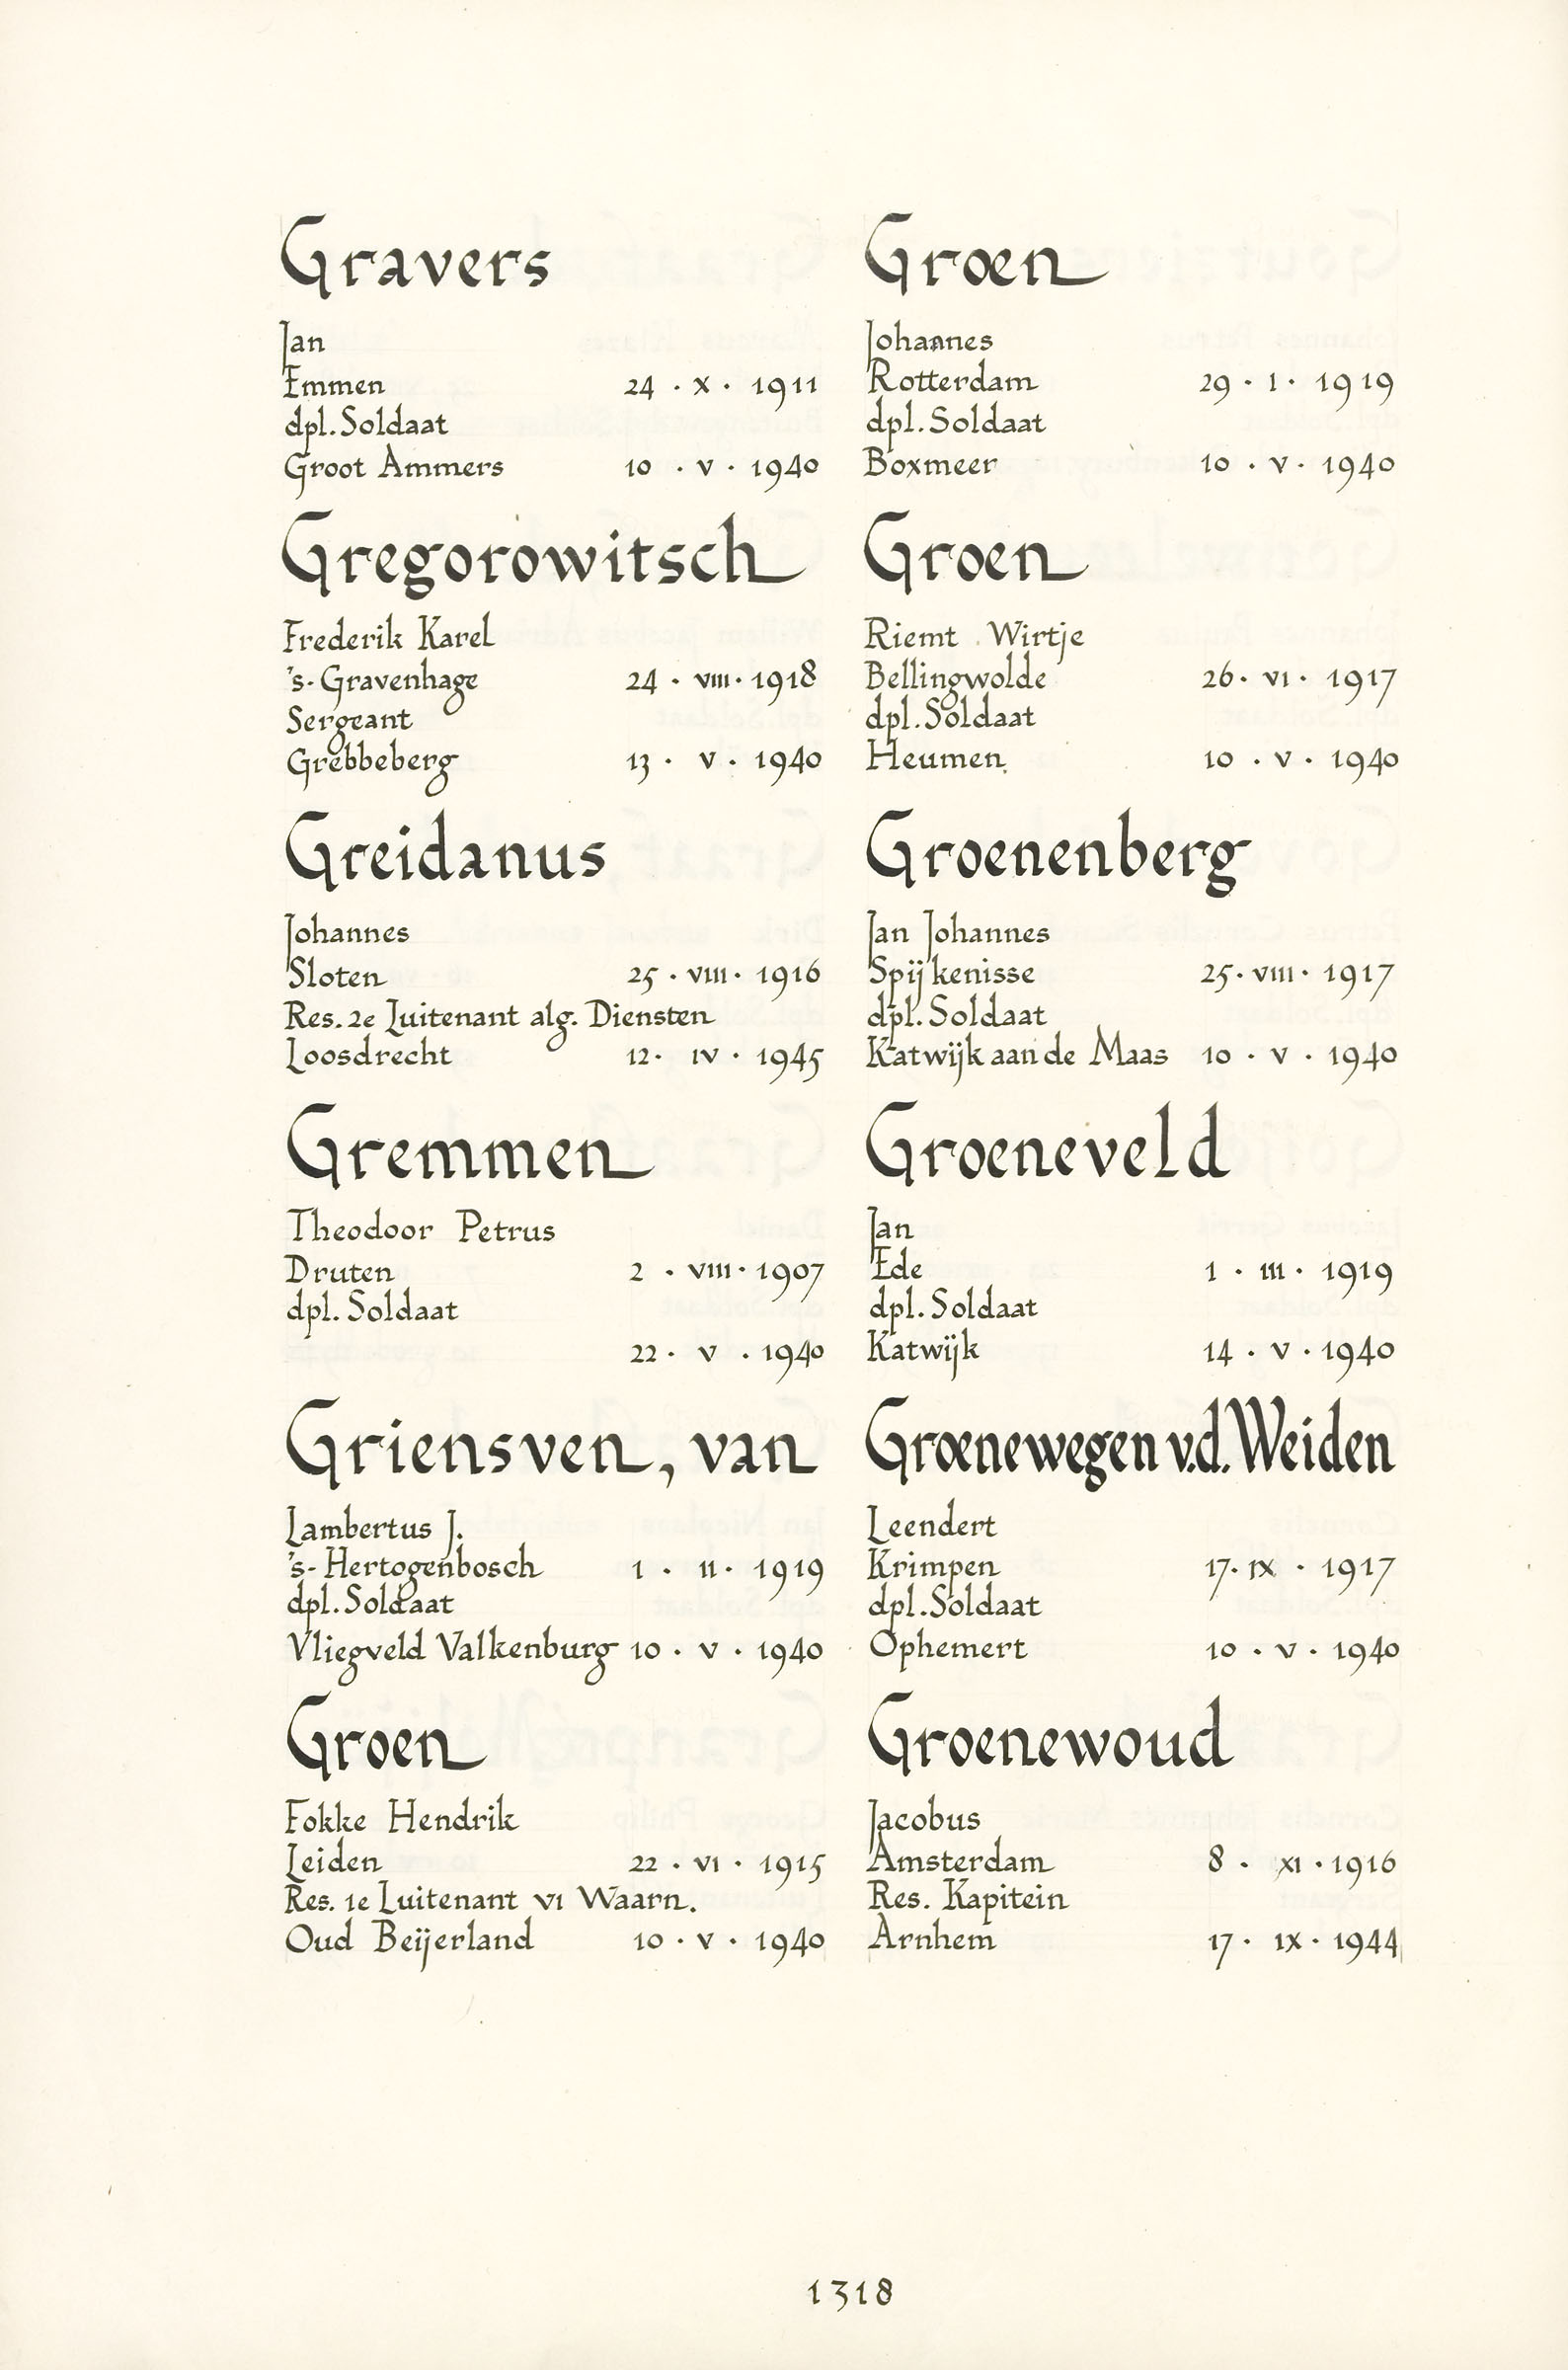 Gravers
Jan
Emmen 24 · X · 1911
dpl. Soldaat
Groot Ammers 10 · V · 1940
Gregorowitsch
Frederik Karel
's-Gravenhage 24 · VIII · 1918
Sergeant
Grebbeberg 13 · V · 1940
Greidanus
Johannes
Sloten 25 · VIII · 1916
Res. 2e Luitenant alg. Diensten
Loosdrecht 12 · IV · 1945
Gremmen
Theodoor Petrus
Druten 2 · VIII · 1907
dpl. Soldaat
22 · V · 1940
Griensven, van
Lambertus J.
's-Hertogenbosch 1 · II · 1919
dpl. Soldaat
Vliegveld Valkenburg 10 · V · 1940
Groen
Fokke Hendrik
Leiden 22 · VI · 1915
Res. 1e Luitenant VI Waarn.
Oud Beijerland 10 · V · 1940
Groen
Johannes
Rotterdam 29 · I · 1919
dpl. Soldaat
Boxmeer 10 · V · 1940
Groen
Riemt Wirtje
Bellingwolde 26 · VI · 1917
dpl. Soldaat
Heumen 10 · V · 1940
Groenenberg
Jan Johannes
Spijkenisse 25 · VIII · 1917
dpl. Soldaat
Katwijk aan de Maas 10 · V · 1940
Groeneveld
Jan
Ede 1 · III · 1919
dpl. Soldaat
Katwijk 14 · V · 1940
Groenewegen v.d. Weiden
Leendert
Krimpen 17 · IX · 1917
dpl. Soldaat
Ophemert 10 · V · 1940
Groenewoud
Jacobus
Amsterdam 8 · XI · 1916
Res. Kapitein
Arnhem 17 · IX · 1944
1318